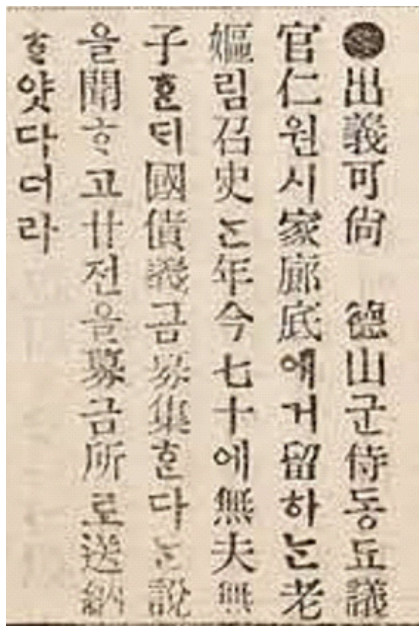 ●出義可尙 德山군侍동됴議
官仁원시家廊底에거留하ᄂᆞᆫ老
嫗림召史ᄂᆞᆫ年今七十에無夫無
子ᄒᆞᆫᄃᆡ國債義금募集ᄒᆞᆫ다ᄂᆞᆫ說
을聞ᄒᆞ고廿전을募금所로送納
ᄒᆞ얏다더라